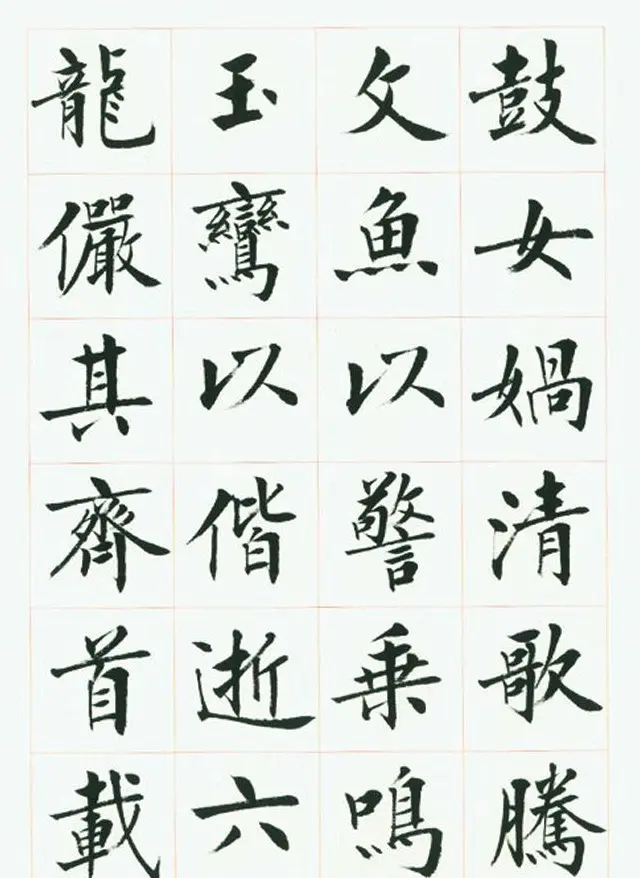 鼓女媧清歌騰
文魚以警乗鳴
玉鸞以偕逝六
龍儼其齊首載